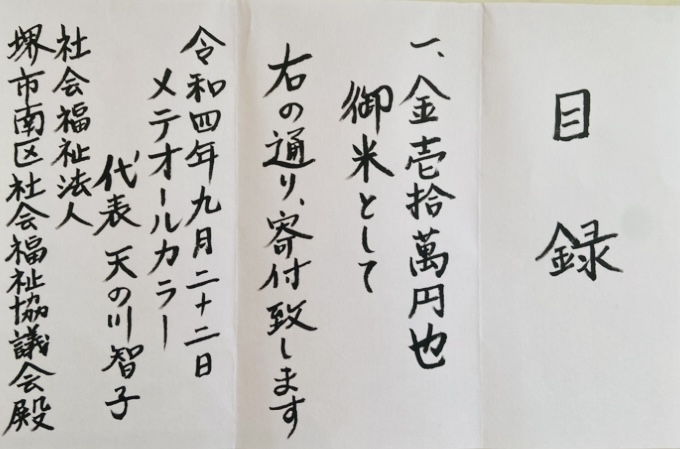 目録
一、金壱拾萬円也
御米として
右の通り、寄付致します
令和四年九月二十二日
メテオールカラー
代表 天の川智子
社会福祉法人
堺市南区社会福祉協議会殿